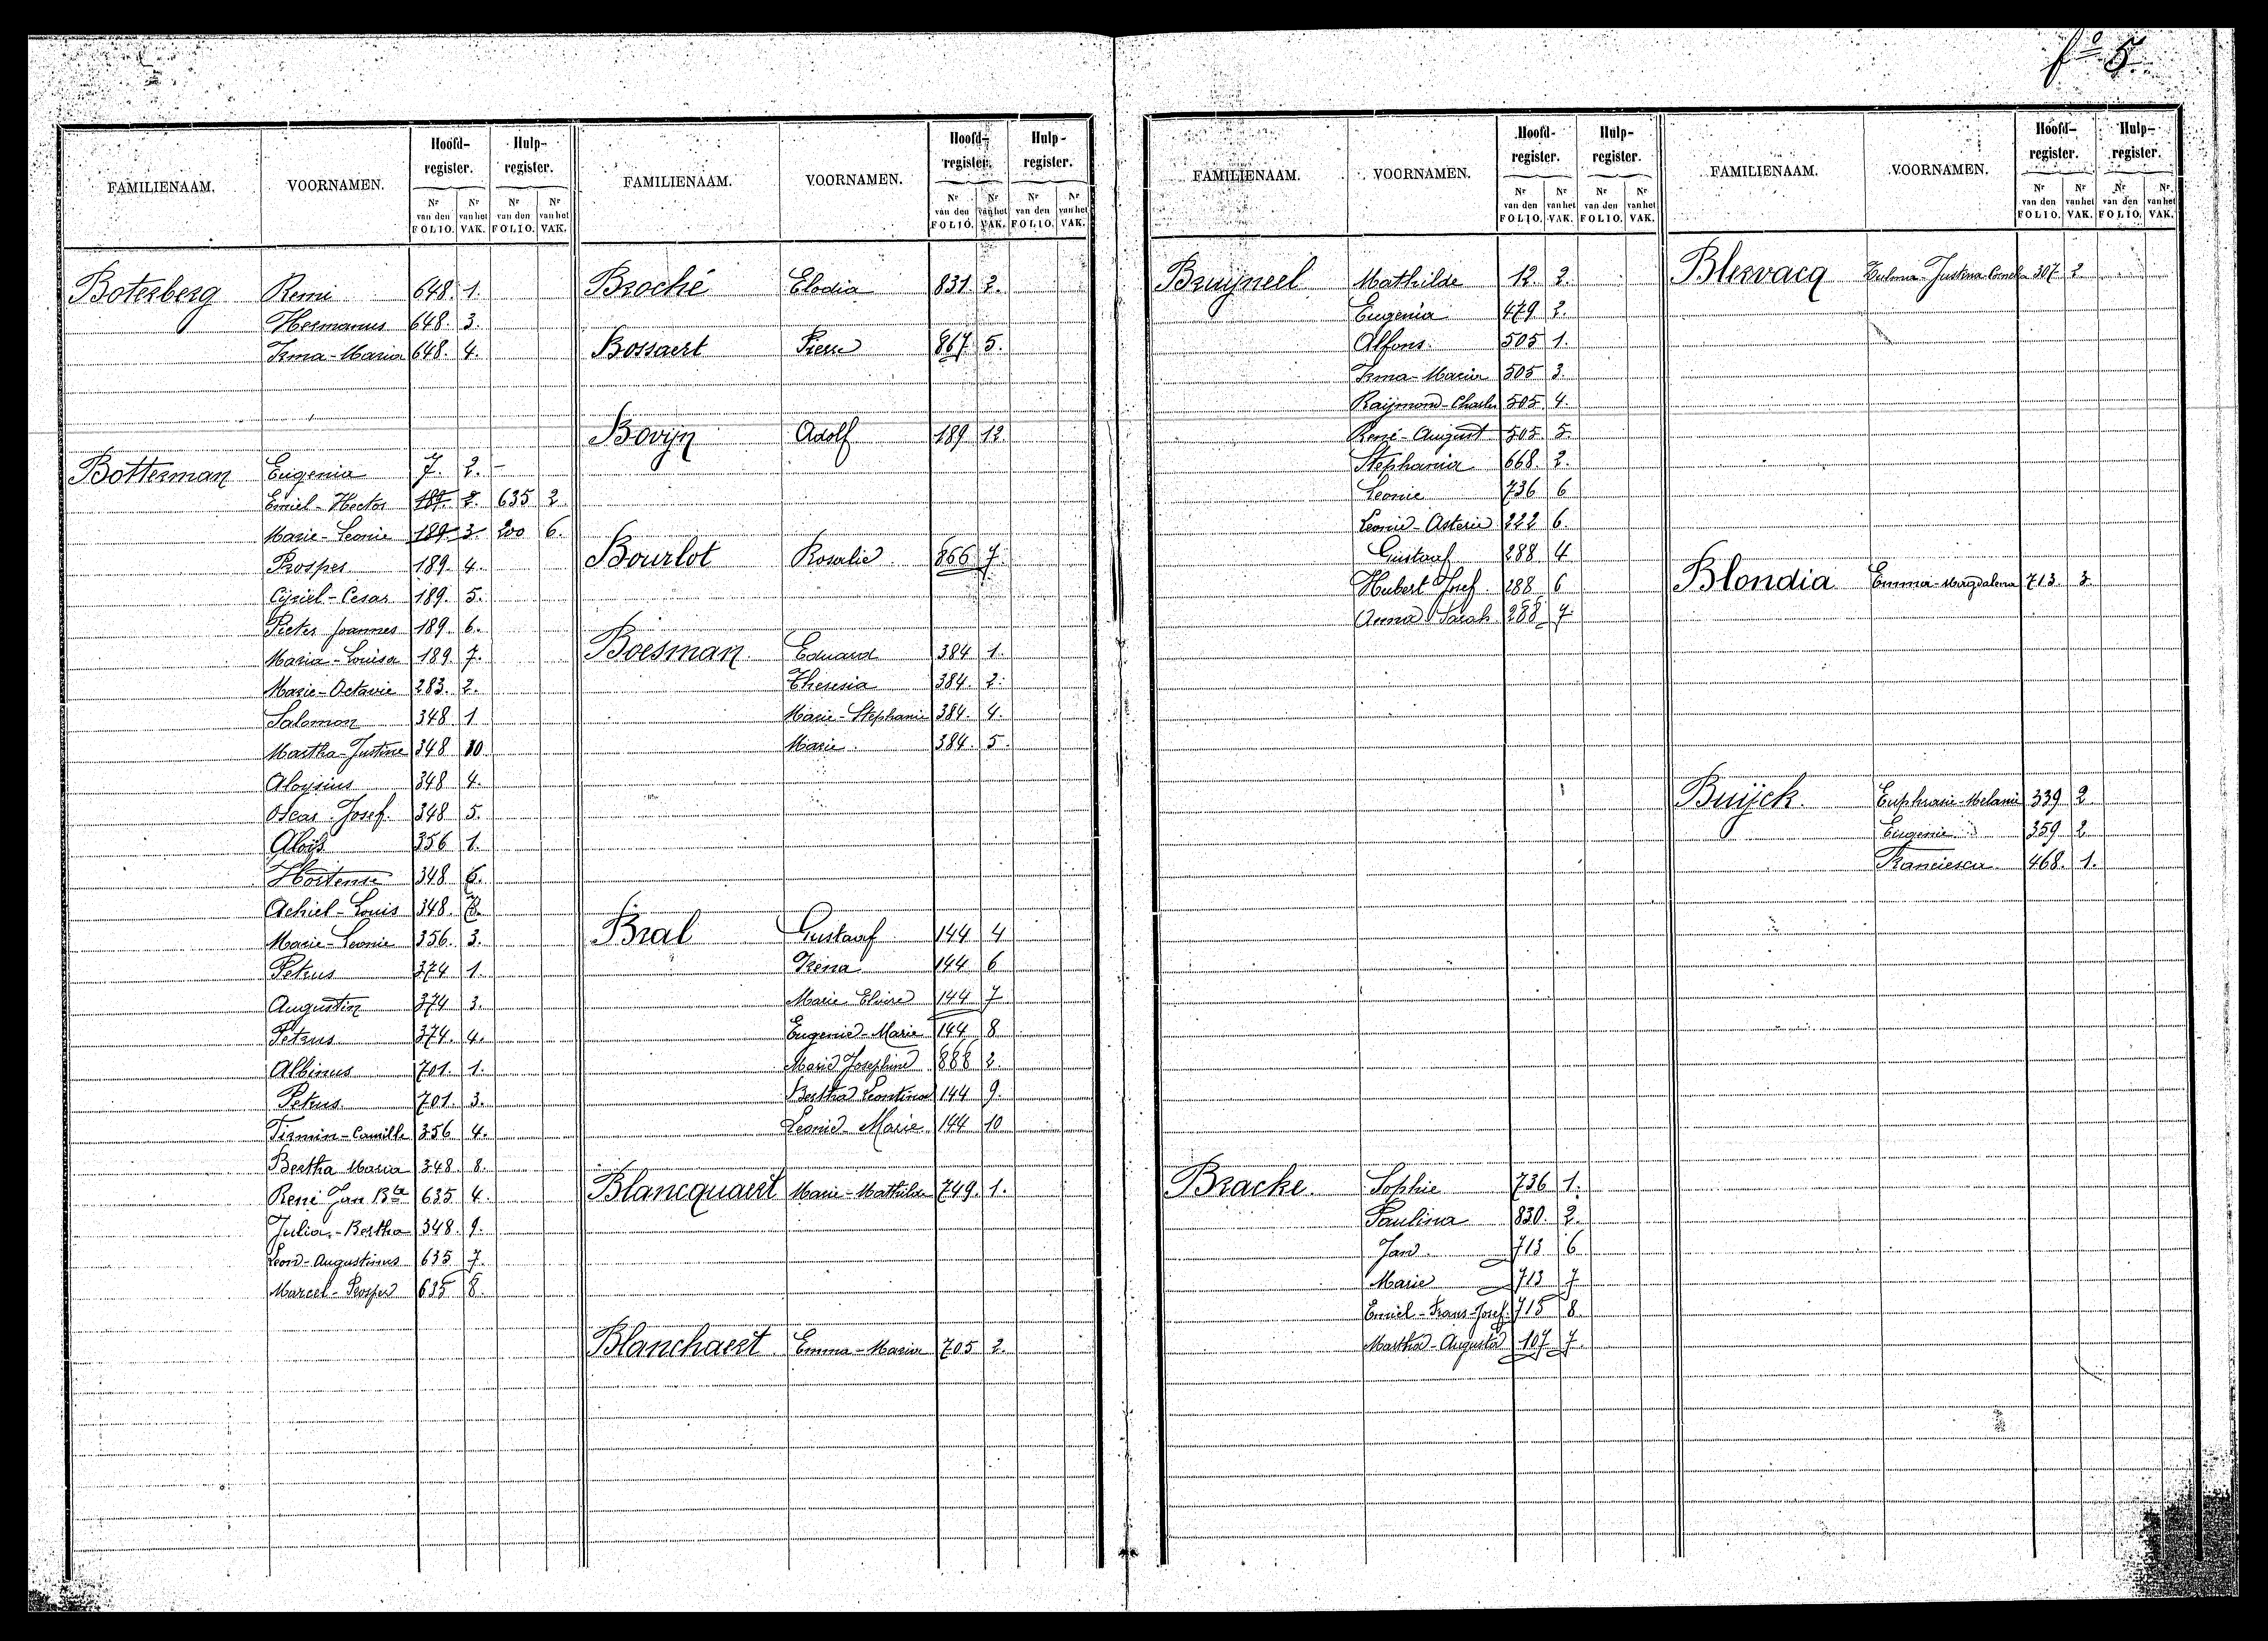 fº 5.
FAMILIENAAM. VOORNAMEN. Hoofd-register. Hulp-register.
Nr van den FOLIO. Nr van het VAK. Nr van den FOLIO. Nr van het VAK.
Boterberg Remi 648. 1.
Hermanus 648. 3.
Irma-Maria 648. 4.
Botterman Eugenia 7. 2. -
Emiel-Hector 189. 2. 635 2
Marie-Leonie 189. 3. 200 6.
Prosper 189. 4.
Cyriel-Cesar 189. 5.
Pieter Joannes 189. 6.
Maria-Louisa 189. 7.
Marie-Octavie 283. 2.
Salomon 348. 1
Martha-Justine 348 10
Aloysius 348 4.
Oscar-Josef. 348 5.
Aloijs 356 1.
Hortense 348. 6.
Achiel-Louis 348.
Marie-Leonie 356. 3.
Petrus 374 1.
Augustin 374 3.
Petrus 374. 4.
Albinus 701. 1.
Petrus 701. 3.
Firmin-Camille 356 4.
Bertha Maria 348 8.
René Jan Bte 635 4.
Julia-Bertha 348. 9.
Leon-Augustinus 635 7.
Marcel-Prosper 635 8.
FAMILIENAAM. VOORNAMEN. Hoofd-register. Hulp-register.
Nr van den FOLIO. Nr van het VAK. Nr van den FOLIO. Nr van het VAK.
Broché Elodia 831. 2.
Bossaert Pierre 867. 5.
Bovijn Adolf 189 12
Bourlot Rosalie 866 7.
Boesman Eduard 384 1.
Theresia 384. 2.
Marie-Stephanie 384. 4.
Marie 384. 5.
Bral Gustaaf 144 4
Irena 144 6
Marie Elvire 144 7
Eugenie-Marie 144 8
Marie Josephine 888 2.
Bertha Leontina 144 9.
Leonie Marie 144 10
Blancquaert Marie-Mathilde 749. 1.
Blanchaert Emma-Maria 705 2.
FAMILIENAAM. VOORNAMEN. Hoofd-register. Hulp-register.
Nr van den FOLIO. Nr van het VAK. Nr van den FOLIO. Nr van het VAK.
Bruyneel Mathilde 12. 2.
Eugenia 479 2.
Alfons 505 1.
Irma-Maria 505 3.
Raymond-Charles 505. 4.
René-August 505 5.
Stephania 668. 2.
Leonie 736 6
Leonie Asterie 222 6.
Gustaaf 288 4
Hubert Josef 288 6
Anna Sarah 288 7
Bracke Sophie 736 1.
Paulina 830. 2.
Jan 713 6
Marie 713 7
Emiel-Frans-Josef. 715 8
Martha-Augusta 107 7.
FAMILIENAAM. VOORNAMEN. Hoofd-register. Hulp-register.
Nr van den FOLIO. Nr van het VAK. Nr van den FOLIO. Nr van het VAK.
Blervacq Justina 307 2
Blondia Emma-Magdalena 713. 3
Buijck Euphrasie-Melanie 339 2
Eugenie 359 2
Franciesca 468. 1.